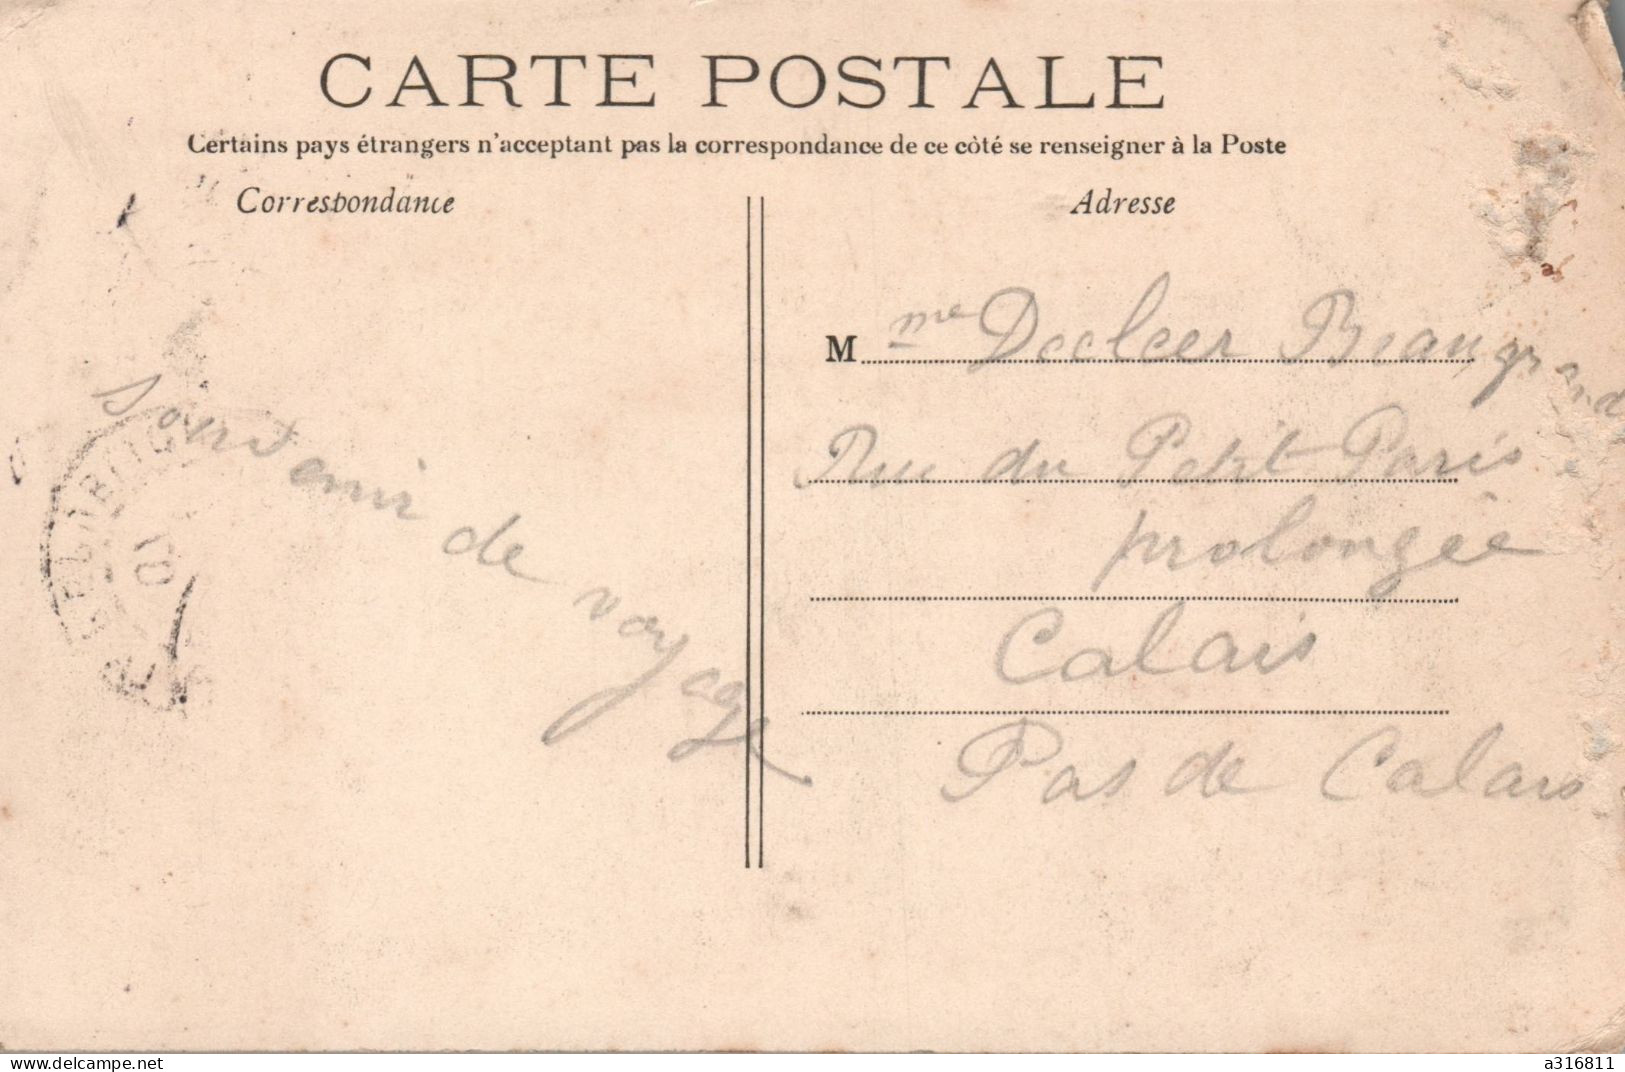 CARTE POSTALE
Certains pays étrangers n'acceptant pas la correspondance de ce côté se renseigner à la Poste
Correspondance
Adresse
Souvenir de voyage
M me Decleer Beaugrand
Rue du Petit Paris
prolongée
Calais
Pas de Calais
www.delcampe.net
a316811